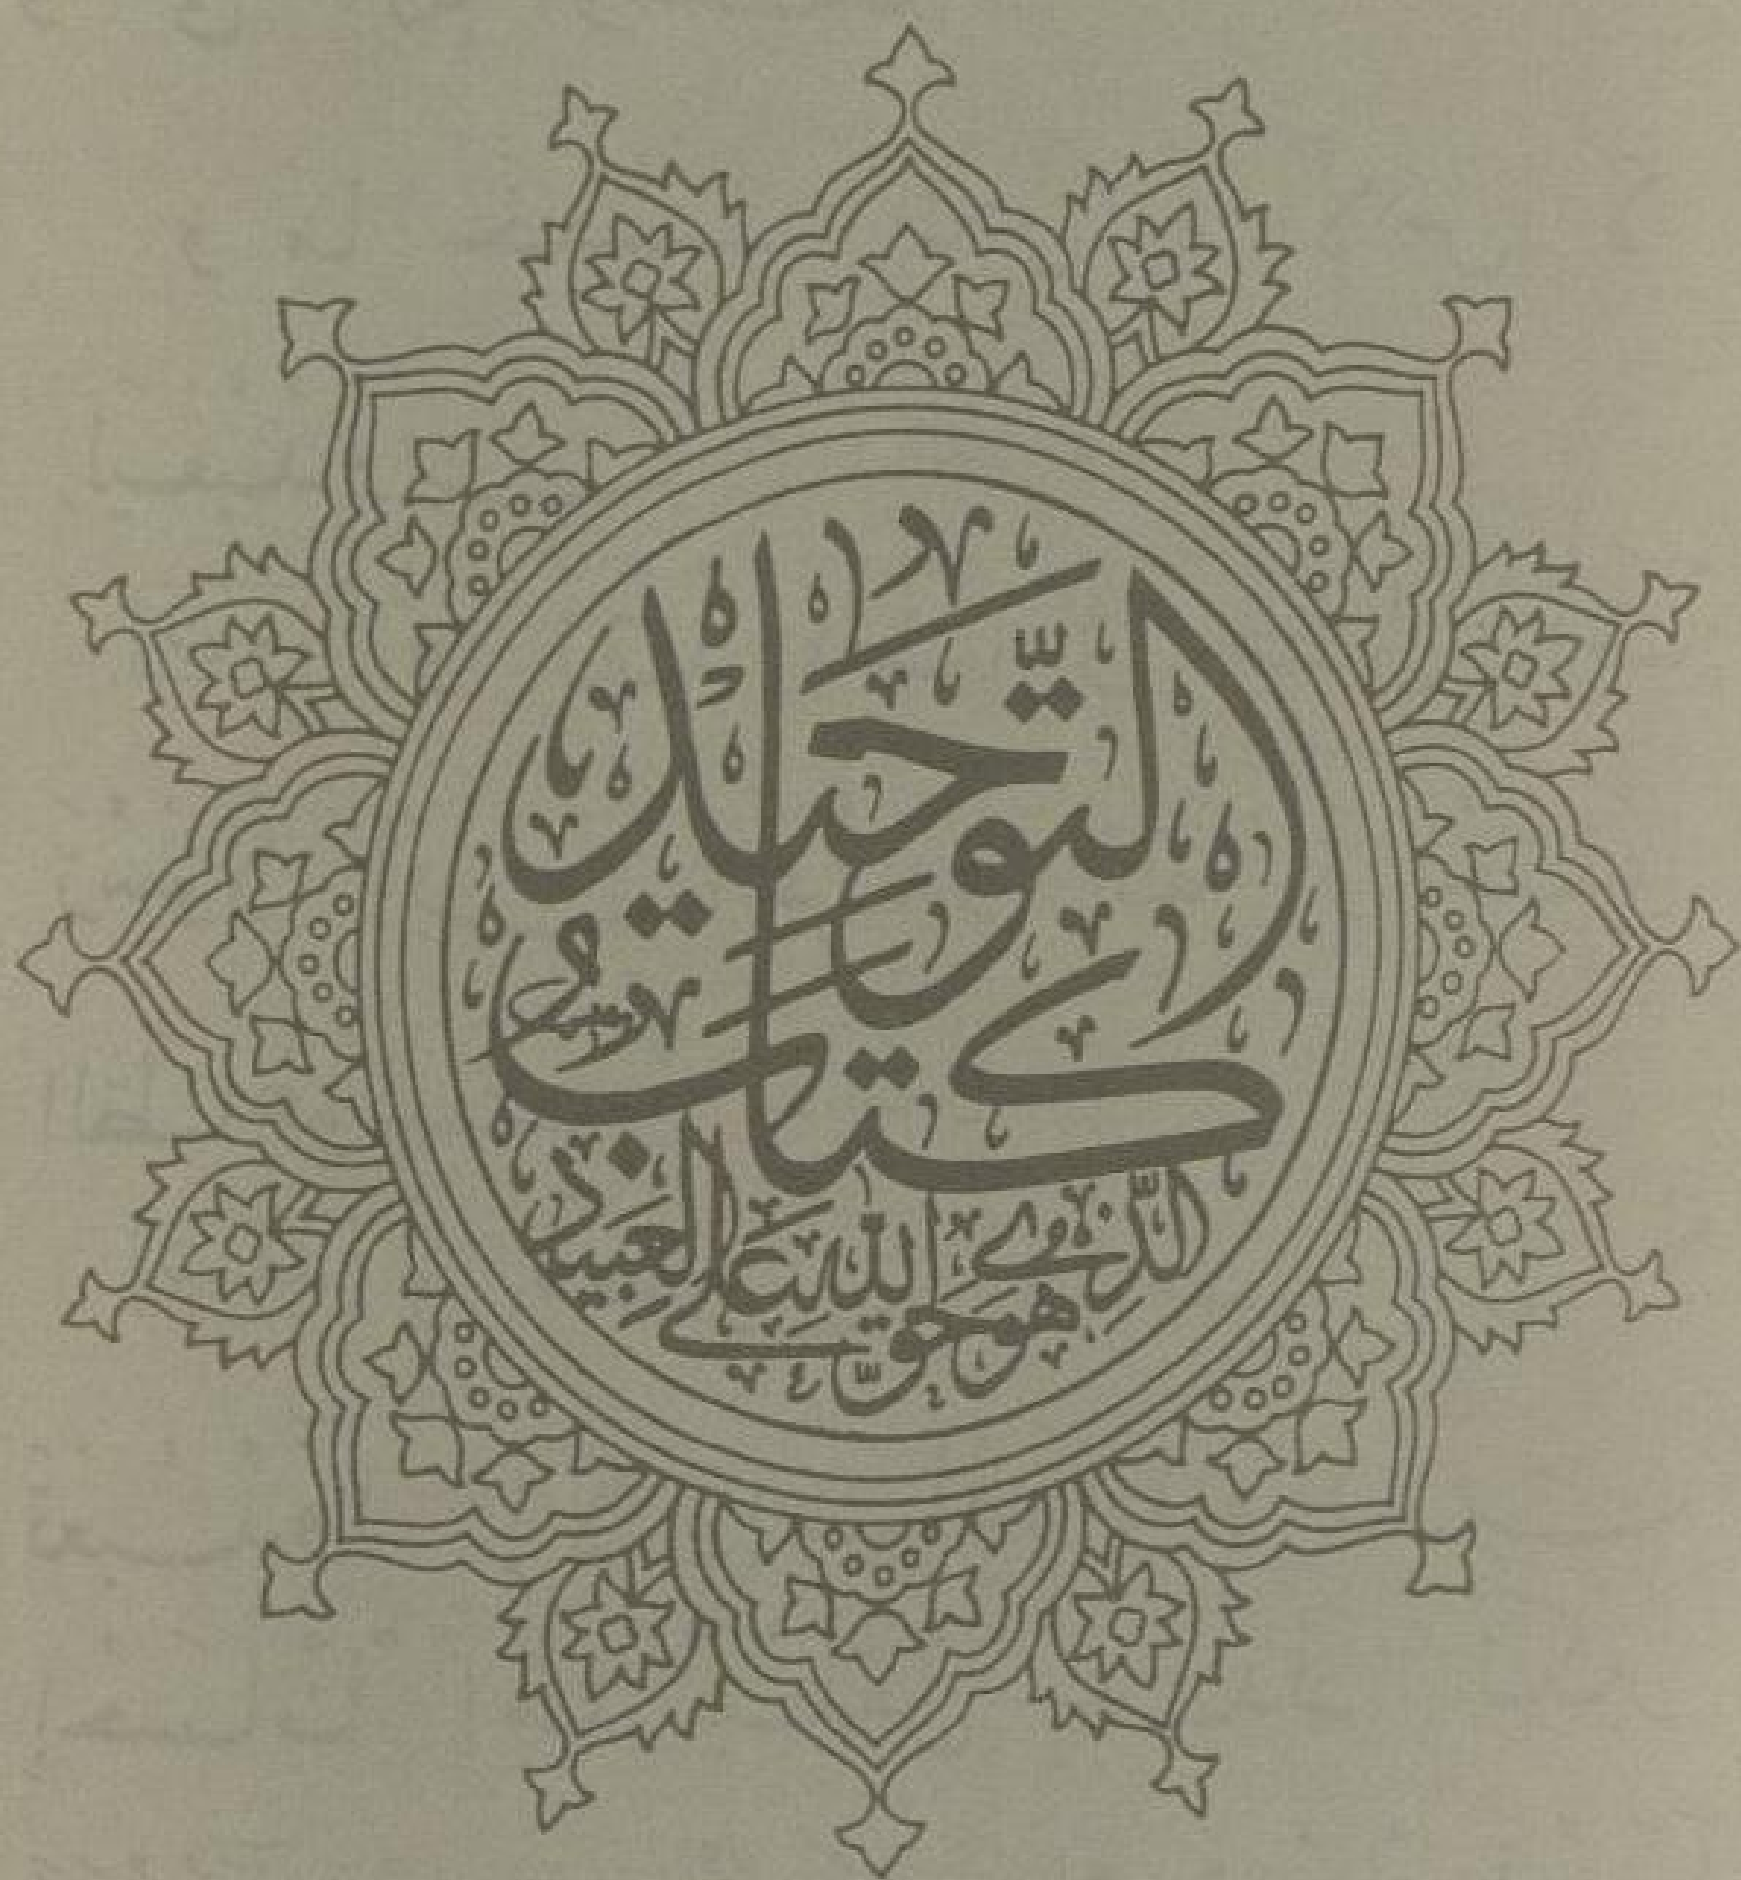 كتاب التوحيد
الذي هو حق الله على العبيد